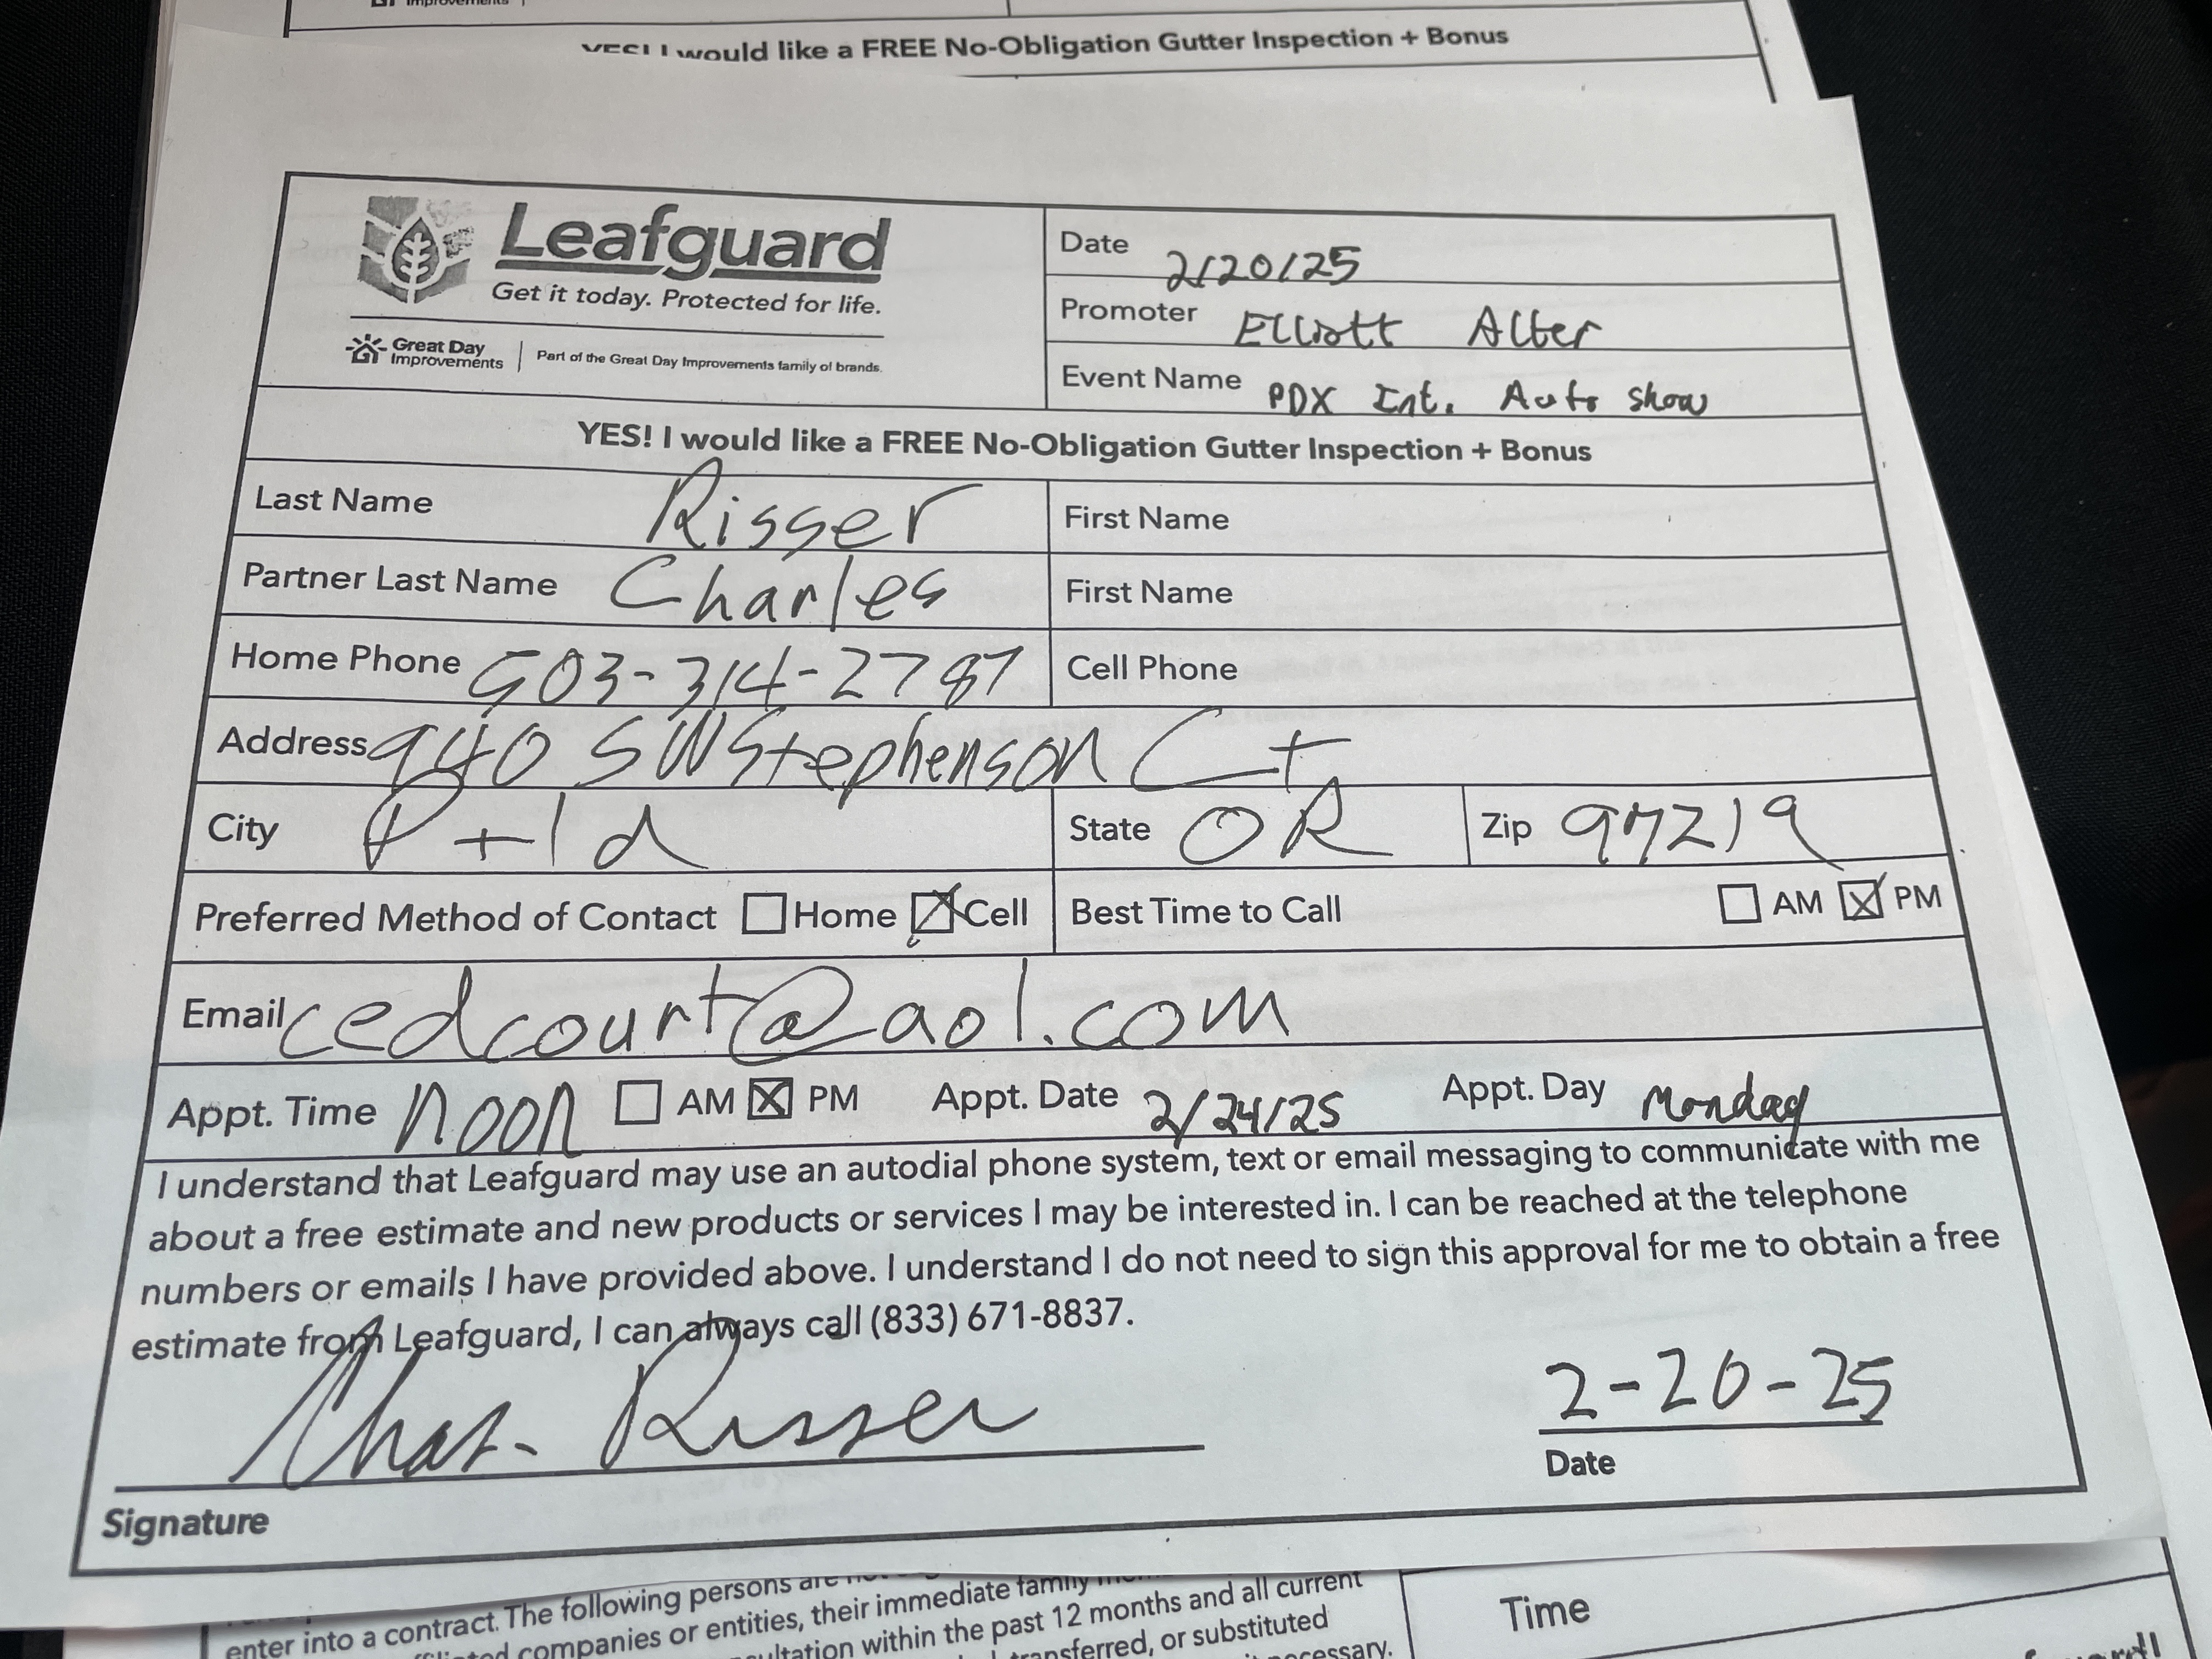 Leafguard
Get it today. Protected for life.
Great Day Improvements | Part of the Great Day Improvements family of brands.
Date 2/20/25
Promoter Elliott Alber
Event Name PDX Int. Auto show
YES! I would like a FREE No-Obligation Gutter Inspection + Bonus
Last Name Risser First Name
Partner Last Name Charles First Name
Home Phone 503-314-2787 Cell Phone
Address 9410 SW Stephenson Ct
City Ptld State OR Zip 97219
Preferred Method of Contact Home Cell Best Time to Call AM PM
Email cedcourt@aol.com
Appt. Time noon AM PM Appt. Date 2/24/25 Appt. Day Monday
I understand that Leafguard may use an autodial phone system, text or email messaging to communicate with me
about a free estimate and new products or services I may be interested in. I can be reached at the telephone
numbers or emails I have provided above. I understand I do not need to sign this approval for me to obtain a free
estimate from Leafguard, I can always call (833) 671-8837.
2-20-25
Signature Date
would like a FREE No-Obligation Gutter Inspection + Bonus
enter into a contract. The following persons are
companies or entities, their immediate family
within the past 12 months and all current
transferred, or substituted
Time